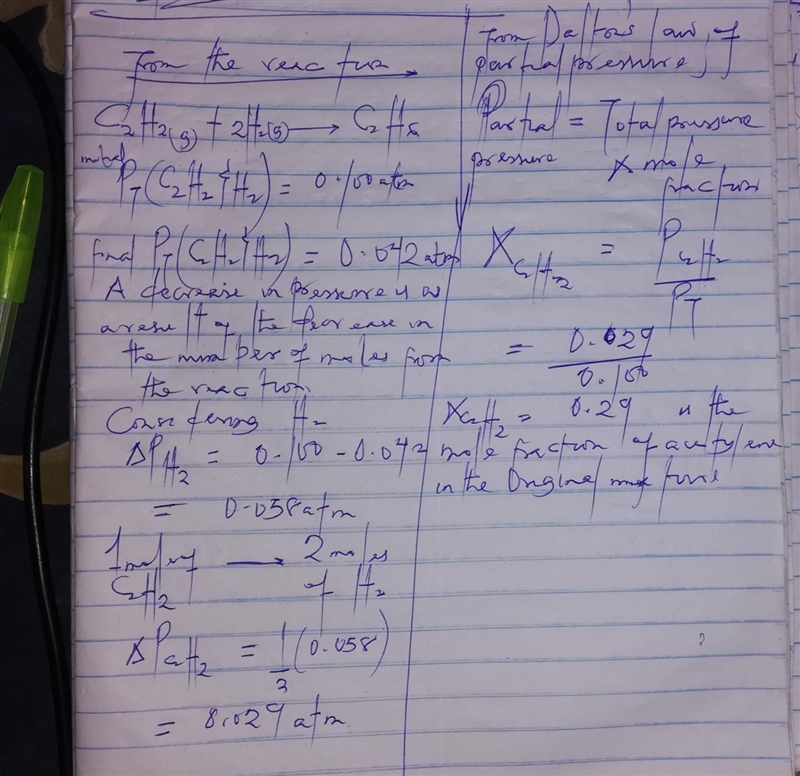 From the reaction
C2H2(g) + 2H2(g) → C2H6
initial
PT(C2H2 & H2) = 0.100 atm
final PT(C2H2 & H2) = 0.042 atm
A decrease in pressure is as
a result of the decrease in
the number of moles from
the reaction.
Considering H2
ΔPH2 = 0.100 - 0.042
= 0.058 atm
1 mole of → 2 moles
C2H2 of H2
ΔPC2H2 = 1/3 (0.058)
= 0.029 atm
From Daltons law, of
partial pressure,
Partial = Total pressure
pressure X mole
fraction
XC2H2 = PC2H2/PT
= 0.029/0.100
XC2H2 = 0.29 is the
mole fraction of acetylene
in the Original mixture